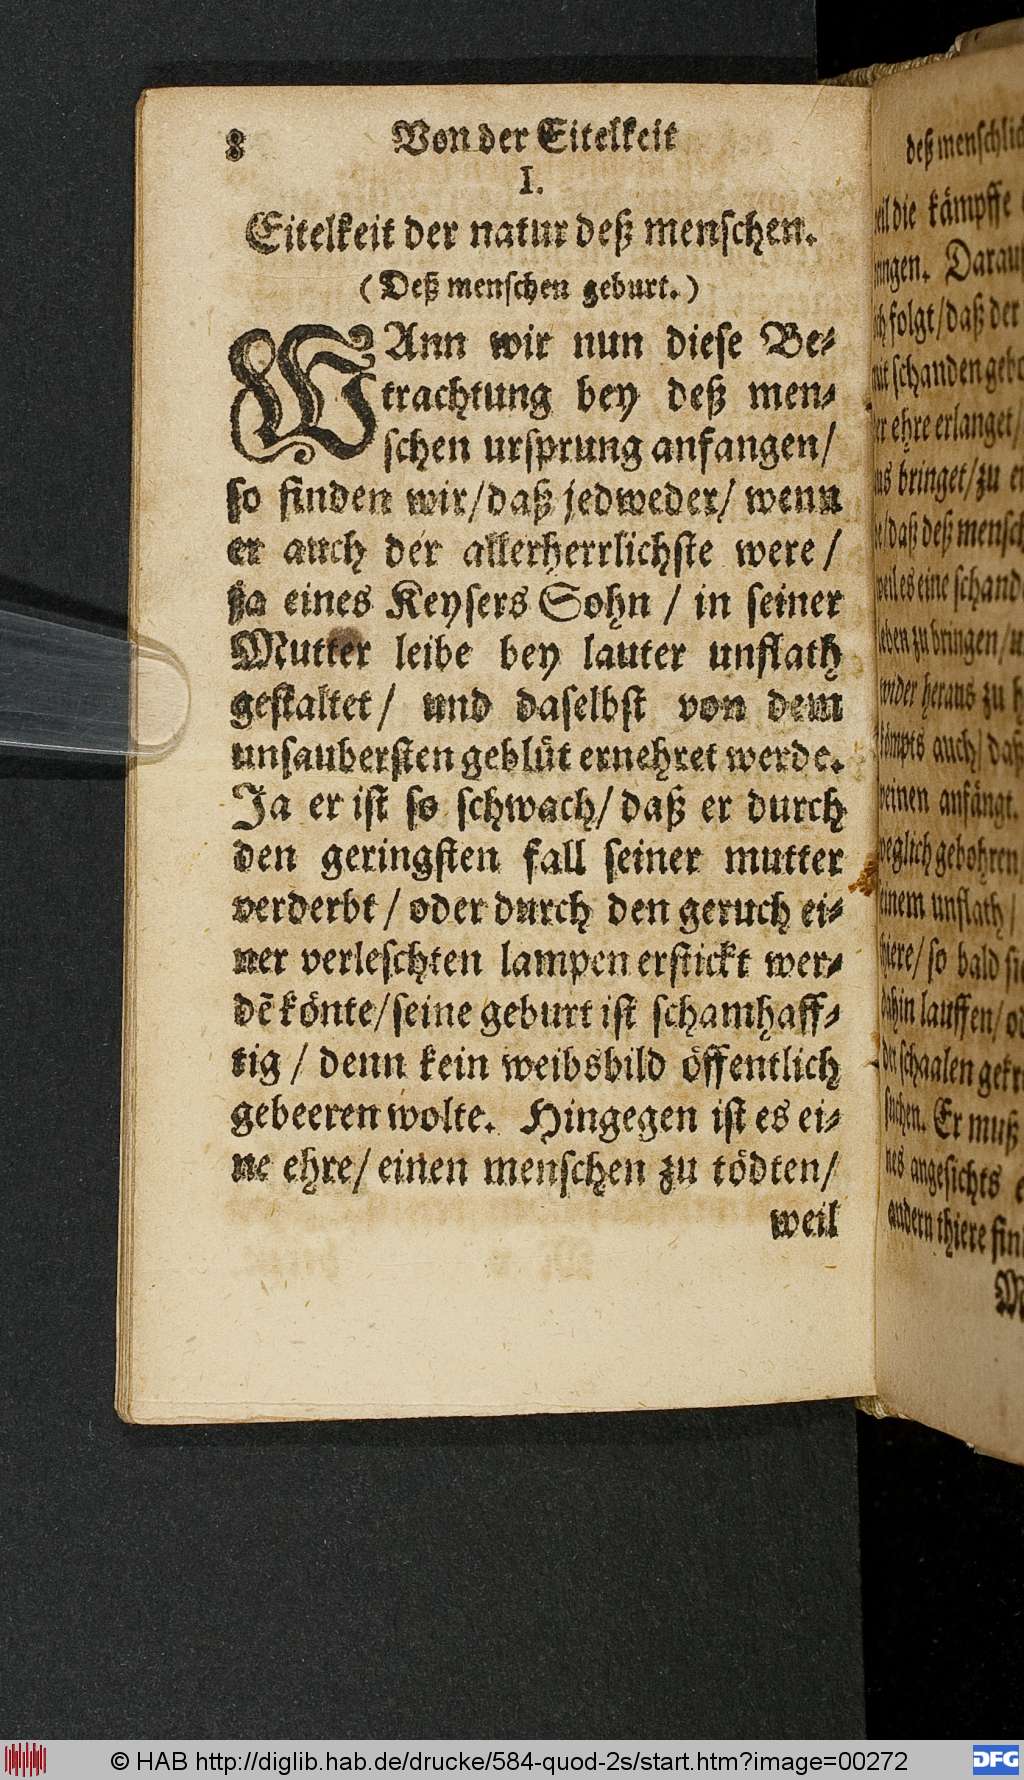 8 Von der Eitelkeit
I.
Eitelkeit der natur deß menschen.
(Deß menschen geburt.)
WAnn wir nun diese Be-
trachtung bey deß men-
schen ursprung anfangen/
so finden wir/daß jedweder/ wenn
er auch der allerherrlichste were/
ja eines Keysers Sohn / in seiner
Mutter leibe bey lauter unflath
gestaltet/ und daselbst von dem
unsaubersten geblüt ernehret werde.
Ja er ist so schwach/ daß er durch
den geringsten fall seiner mutter
verderbt/ oder durch den geruch ei-
ner verleschten lampen erstickt wer-
dē könte/seine geburt ist schamhaff-
tig / denn kein weibsbild öffentlich
gebeeren wolte. Hingegen ist es ei-
ne ehre/ einen menschen zu tödten/
weil
deß menschlich
die kämpffe
Darau
folgt/daß der
schanden
ehre erlanget/
bringet/zu
daß deß mensch
eine schand
zu bringen/
wider heraus zu
auch/ daß
anfängt.
gebohren
unflath/
so bald
dahin lauffen/
schaalen
suchen. Er muß
angesichts
andern thiere
© HAB http://diglib.hab.de/drucke/584-quod-2s/start.htm?image=00272
DFG